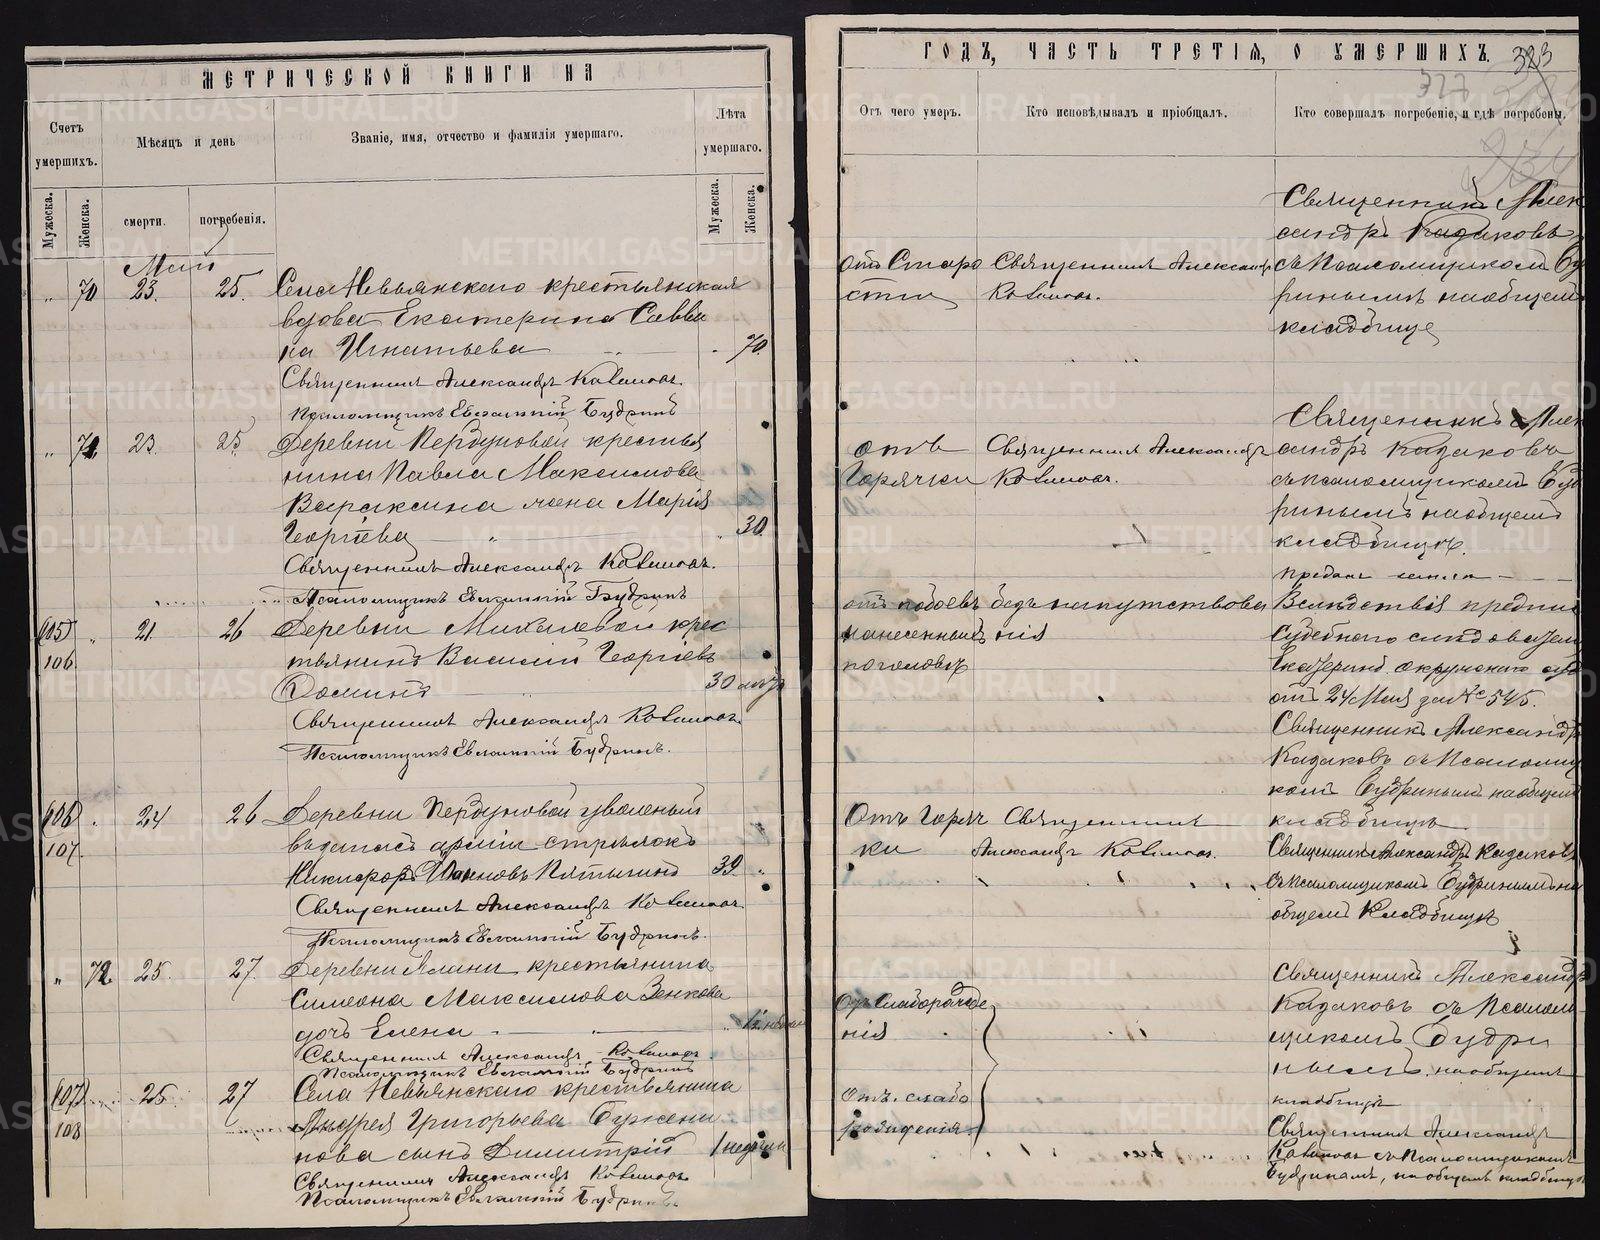 МЕТРИЧЕСКОЙ КНИГИ НА
Счетъ умершихъ.
Мужеска.
Женска.
Мѣсяцъ и день
смерти.
погребенія.
Званіе, имя, отчество и фамилія умершаго.
Лѣта умершаго.
Мужеска.
Женска.
Май
„ 70 23. 25. Села Невьянскаго крестьянская
вдова Екатерина Савви
на Игнатьева 70.
Священникъ Александръ Казаковъ.
Псаломщикъ Евгеній Будринъ
„ 71. 23. 25. Деревни Пердуновой крестья
нина Павла Максимова
Вараксина жена Марія
Георгіева 30.
Священникъ Александръ Казаковъ.
Псаломщикъ Будринъ
105 „ 21. 26 Деревни Михалевой крес
106 тьянинъ Василій Георгіевъ
Доминъ 30
Священникъ Александръ Казаковъ.
Псаломщикъ Будринъ.
106 24 26 Деревни Пердуновой уволенный
107 въ запасъ арміи стрѣлокъ
Никифоръ Ивановъ Пятыгинъ 39 „
Священникъ Александръ Казаковъ
Псаломщикъ Будринъ.
„ 72 25. 27. Деревни Ялани крестьянина
Симеона Максимова Зенкова
дочь Елена
Священникъ Александръ Казаковъ
Псаломщикъ Будринъ
107 25. 27 Села Невьянскаго крестьянина
108 Андрея Григорьева Бужени
нова сынъ Димитрій 1 недѣли
Священникъ Александръ Казаковъ
Псаломщикъ Будринъ.
ГОДЪ, ЧАСТЬ ТРЕТІЯ, О УМЕРШИХЪ.
323
327
Отъ чего умеръ.
Кто исповѣдывалъ и пріобщалъ.
Кто совершалъ погребеніе, и гдѣ погребены.
отъ Старо
сти
Священникъ Александръ
Казаковъ.
Священникъ Алек
сандръ Казаковъ
съ Псаломщикомъ Буд
ринымъ на общемъ
кладбищѣ
отъ
Горячки
Священникъ Александръ
Казаковъ.
Священникъ Алек
сандръ Казаковъ
съ псаломщикомъ Буд
ринымъ на общемъ
кладбищѣ.
отъ побоевъ
нанесенныхъ
по головѣ
безъ напутствова
нія
Преданъ землѣ
Вслѣдствіе предпис
Судебнаго слѣдователя
Екатеринб. окружнаго суд
отъ 24 Мая за № 545.
Священникъ Александръ
Казаковъ съ Псаломщи
комъ Будринымъ на общемъ
кладбищѣ
Отъ Горяч
ки
Священникъ
Александръ Казаковъ.
Священникъ Александръ Казаковъ
съ Псаломщикомъ Будринымъ на
общемъ Кладбищѣ
Отъ Слаборожде
нія
Священникъ Александръ
Казаковъ съ Псалом
щикомъ Будри
нымъ на общемъ
кладбищѣ
Отъ слабо
рожденія.
Священникъ Александръ
Казаковъ съ Псаломщикомъ
Будринымъ, на общемъ кладбищѣ
METRIKI.GASO-URAL.RU